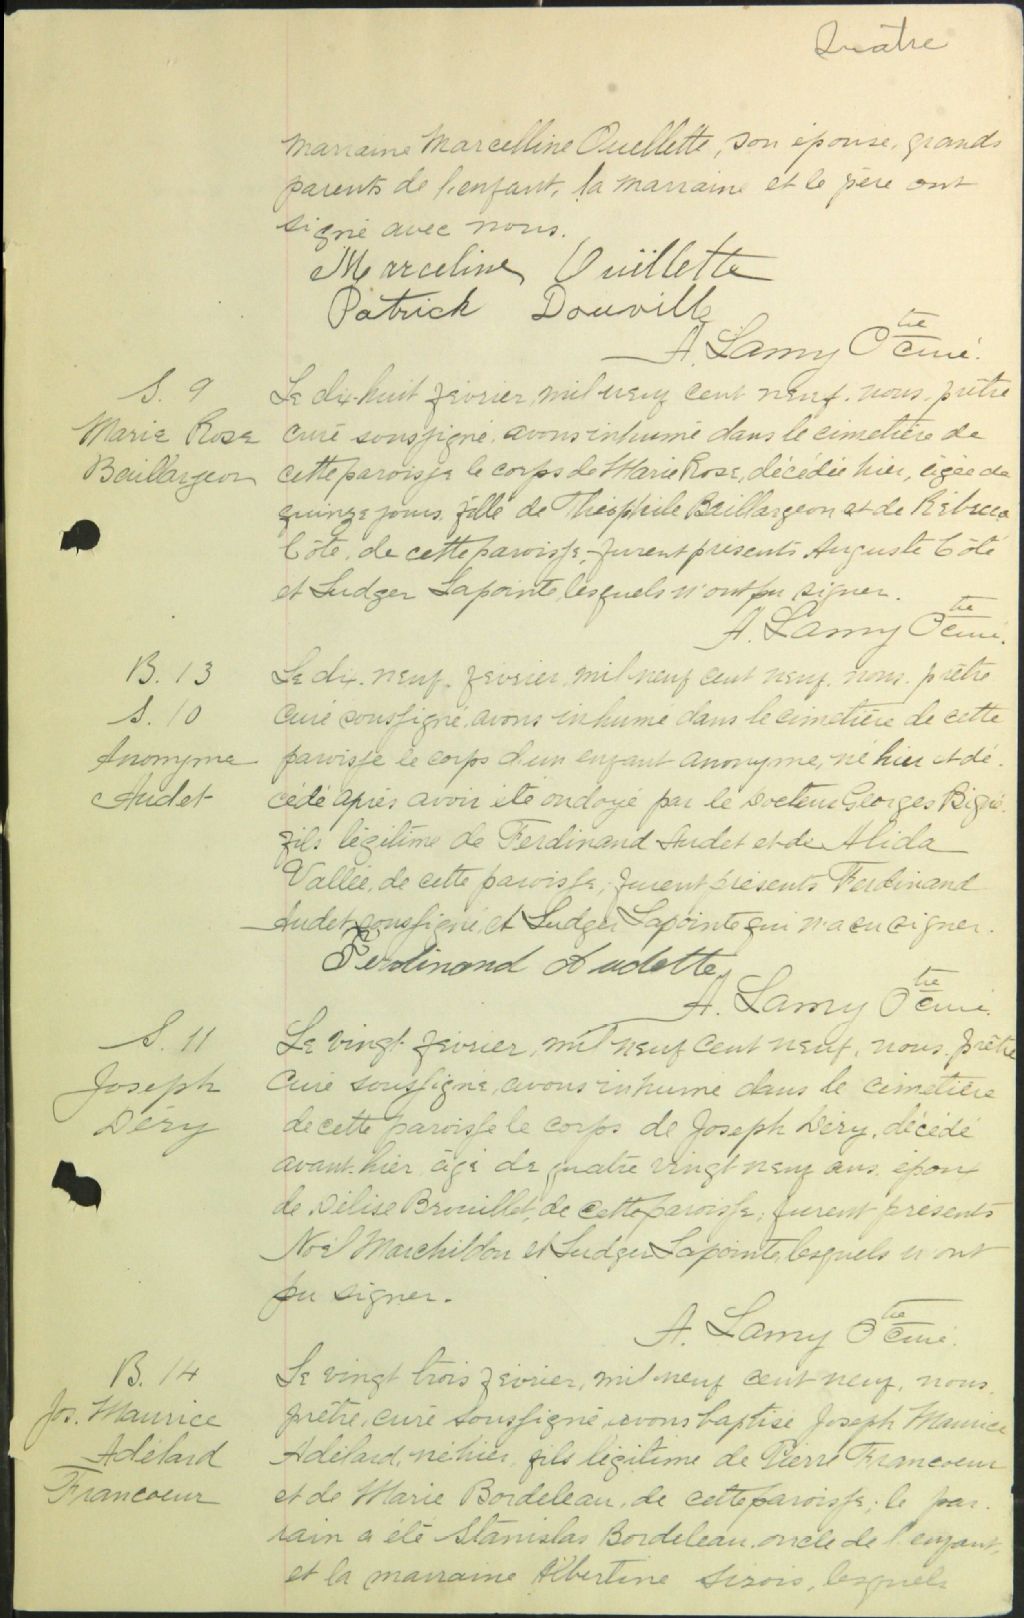 Quatre
marraine Marcelline Ouellette, son épouse, grands
parents de l'enfant, la marraine et le père ont
signé avec nous.
Marceline Ouillette
Patrick Douville
A. Lamy Ptre curé.
S. 9
Marie Rose
Baillargeon
Le dix-huit février, mil neuf cent neuf, nous, prêtre
curé soussigné, avons inhumé dans le cimetière de
cette paroisse le corps de Marie Rose, décédée hier, âgée de
quinze jours, fille de Théophile Baillargeon et de Rébecca
Côté, de cette paroisse, furent présents Auguste Côté
et Ludger Lapointe, lesquels n'ont pu signer.
A. Lamy Ptre curé.
B. 13
S. 10
Anonyme
Audet
Le dix-neuf février, mil neuf cent neuf, nous, prêtre
curé soussigné, avons inhumé dans le cimetière de cette
paroisse le corps d'un enfant anonyme, né hier et dé-
cédé après avoir été ondoyé par le Docteur Georges Bigué
fils légitime de Ferdinand Audet et de Alida
Vallée, de cette paroisse; furent présents Ferdinand
Audet soussigné, et Ludger Lapointe qui n'a su signer.
Ferdinand Audette
A. Lamy Ptre curé.
S. 11
Joseph
Déry
Le vingt février, mil neuf cent neuf, nous, prêtre
curé soussigné, avons inhumé dans le cimetière
de cette paroisse le corps de Joseph Déry, décédé
avant hier, âgé de quatre vingt neuf ans, époux
de Délise Brouillet, de cette paroisse; furent présents
Noël Marchildon et Ludger Lapointe, lesquels n'ont
pu signer.
A. Lamy Ptre curé.
B. 14
Jos. Maurice
Adélard
Francoeur
Le vingt trois février, mil neuf cent neuf, nous,
prêtre, curé soussigné avons baptisé Joseph Maurice
Adélard, né hier, fils légitime de Pierre Francoeur
et de Marie Bordeleau, de cette paroisse; le par-
rain a été Stanislas Bordeleau, oncle de l'enfant,
et la marraine Albertine Sirois, lesquels